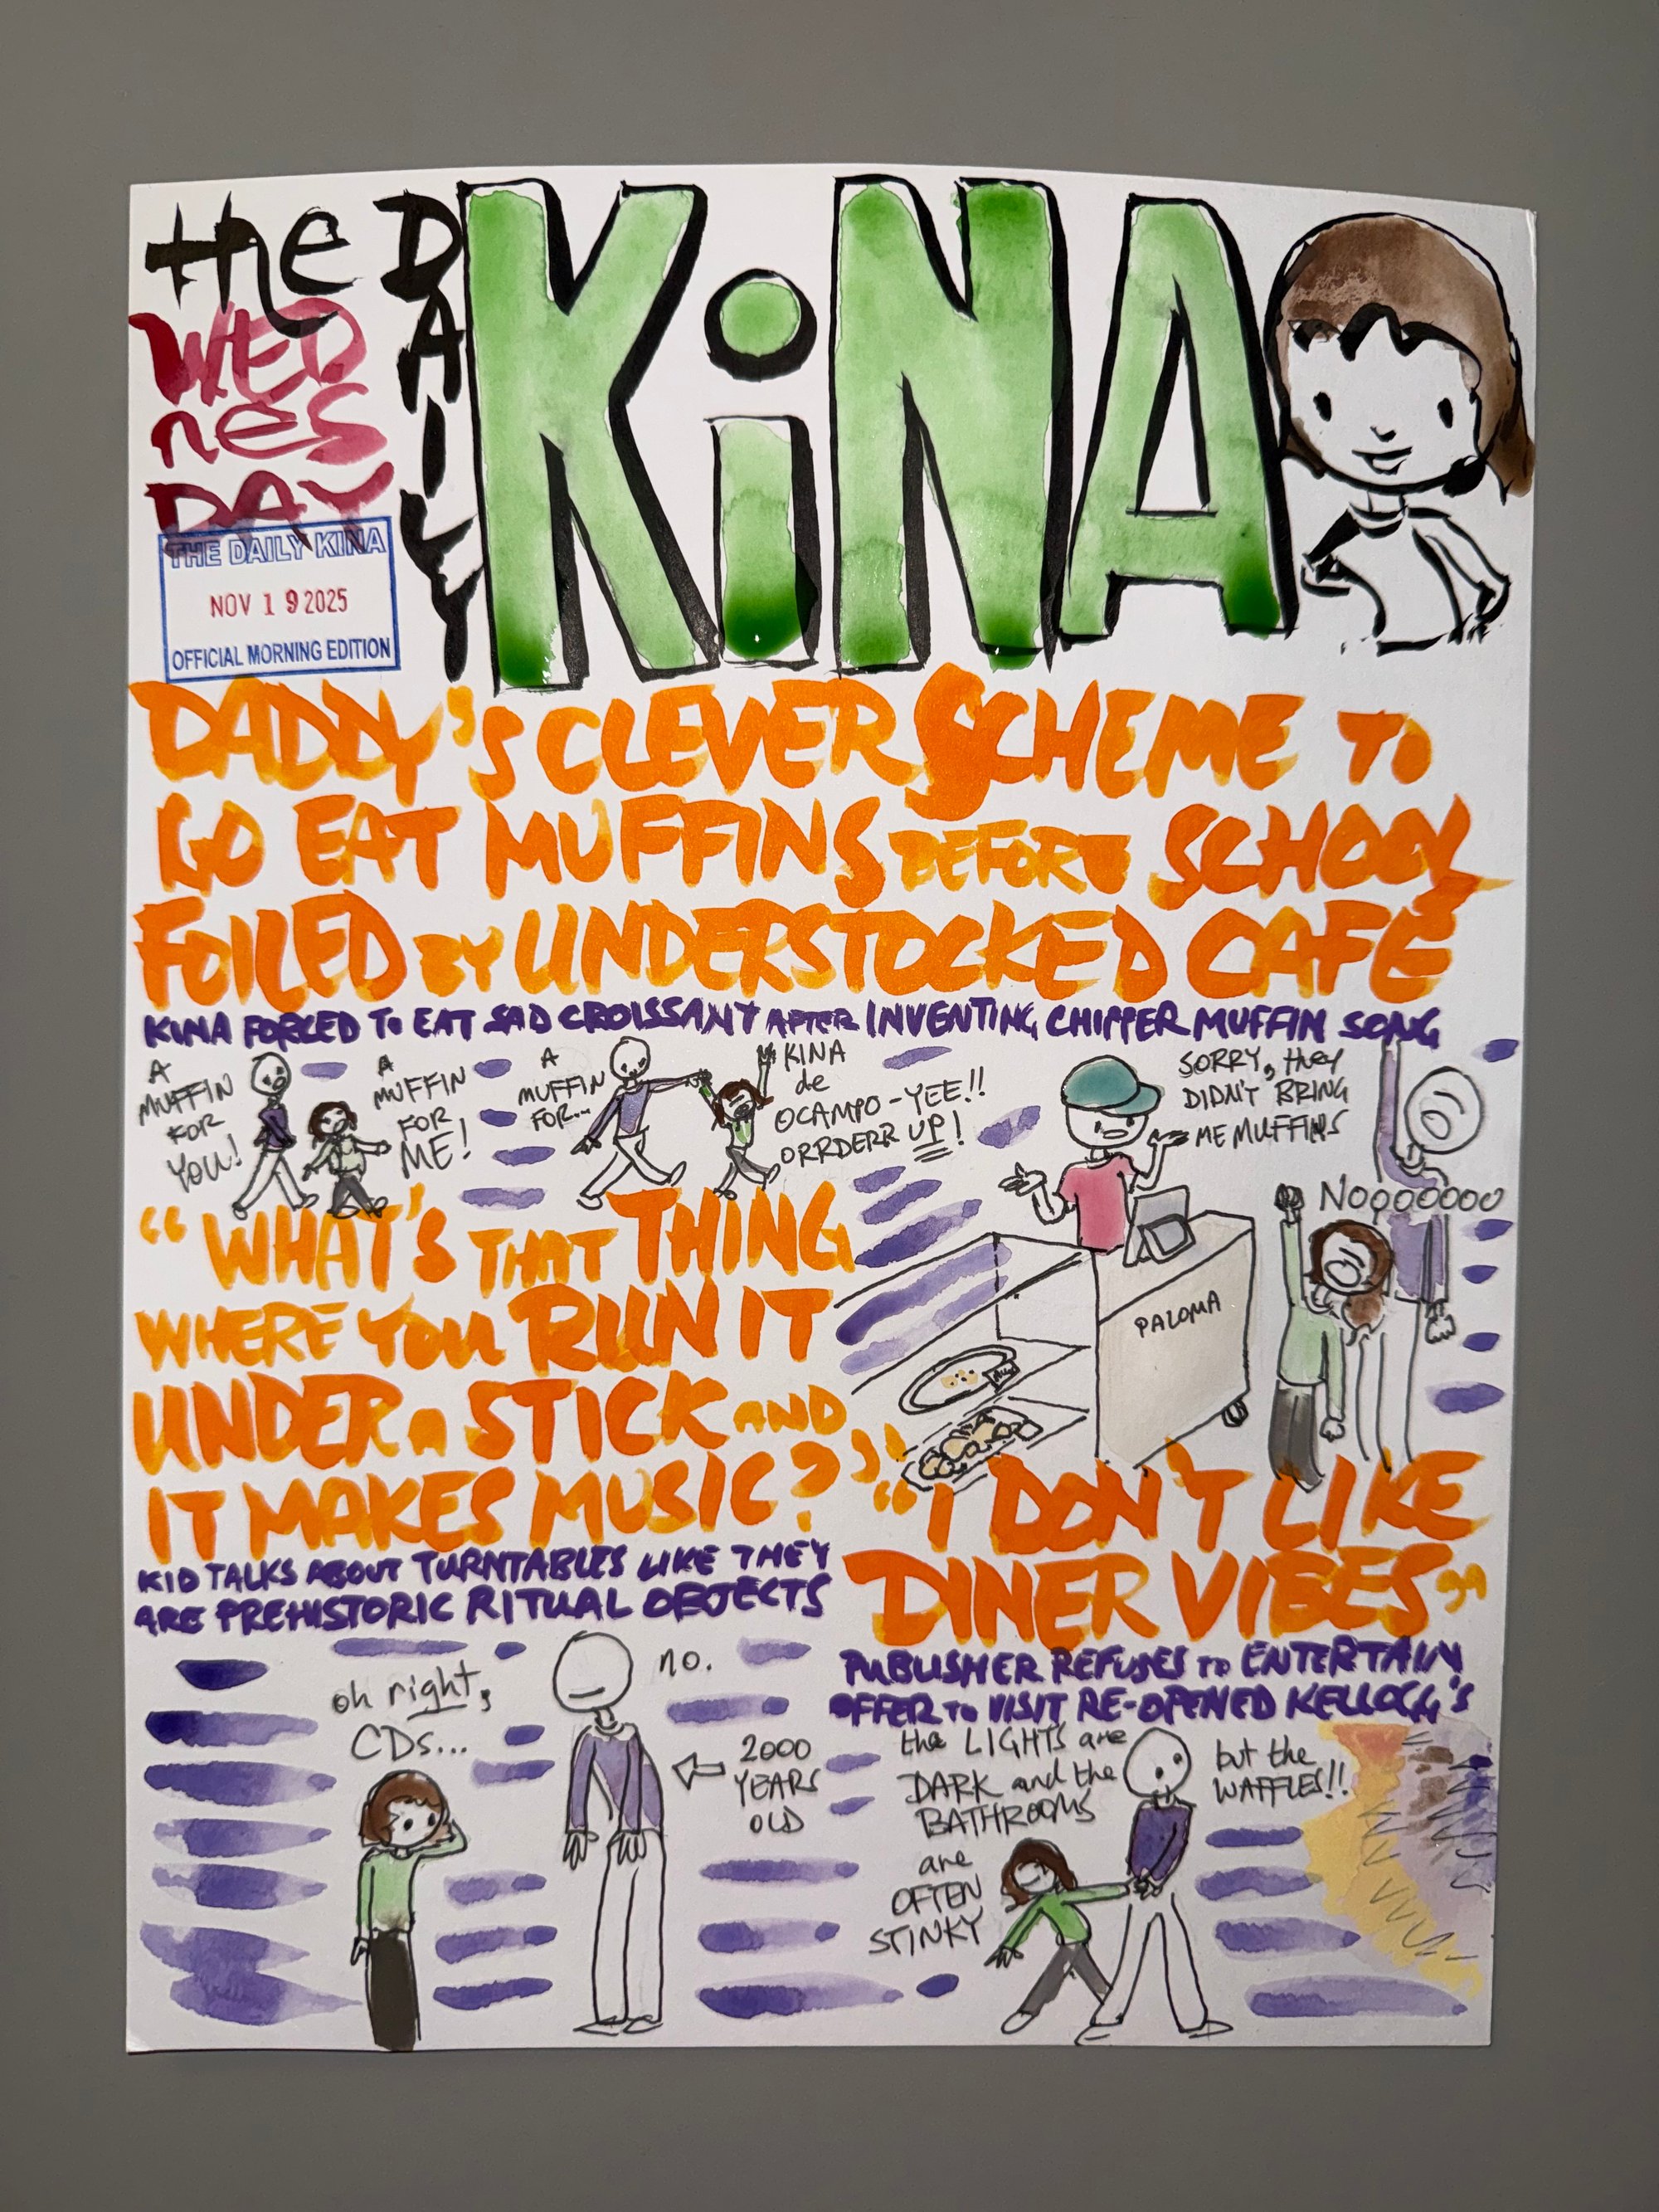 the DAILY
KiNA
WEDnesDAY
THE DAILY KINA
NOV 19 2025
OFFICIAL MORNING EDITION
DADDY'S CLEVER SCHEME TO
GO EAT MUFFINS BEFORE SCHOOL
FOILED BY UNDERSTOCKED CAFÉ
KINA FORCED TO EAT SAD CROISSANT AFTER INVENTING CHIPPER MUFFIN SONG
A
MUFFIN
FOR
YOU!
A
MUFFIN
FOR
ME!
A
MUFFIN
FOR...
KINA
de
OCAMPO-YEE!!
ORRDERR UP!
SORRY, they
DIDN'T BRING
ME MUFFINS
NOOOOOOO
PALOMA
"WHAT'S THAT THING
WHERE YOU RUN IT
UNDER A STICK AND
IT MAKES MUSIC?"
KID TALKS ABOUT TURNTABLES LIKE THEY
ARE PREHISTORIC RITUAL OBJECTS
oh right,
CDs...
no.
2000
YEARS
OLD
"I DON'T LIKE
DINER VIBES"
PUBLISHER REFUSES TO ENTERTAIN
OFFER TO VISIT RE-OPENED KELLOGG'S
the LIGHTS are
DARK and the
BATHROOMS
are
OFTEN
STINKY
but the
WAFFLES!!